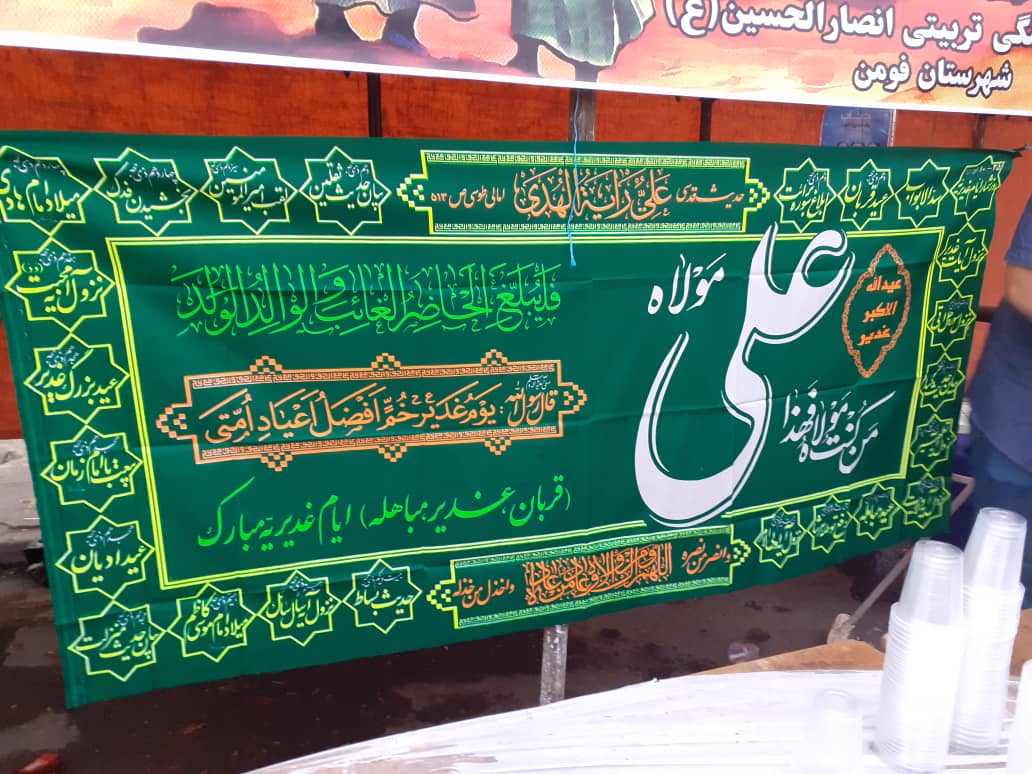 نگی تربیتی انصارالحسین(ع)
شهرستان فومن
حدیث قدسی
علیٌّ رایة الهدی
امالی طوسی ص ۵۱۳
عید قربان
سد الابواب
چاپ حدیث ثقلین
لقب امیرالمومنین
بخشیدن فدک
میلاد امام هادی
نزول آیه محبت
عید بزرگ غدیر
بیعت با امام زمان
عید ادیان
چاپ حدیث منزلت
میلاد امام موسی کاظم
حدیث بساط
عید مباهله
نزول آیات غدیر
عیدالله
الاکبر
غدیر
من کنت مولاه فهذا
علی
مولاه
فلیبلغ الحاضر الغائب و الوالد الولد
قال رسول الله: یوم غدیر خم افضل اعیاد امتی
(قربان، غدیر، مباهله) ایام غدیریه مبارک
وانصر من نصره
اللهم وال من والاه و عاد من عاداه
واخذل من خذله